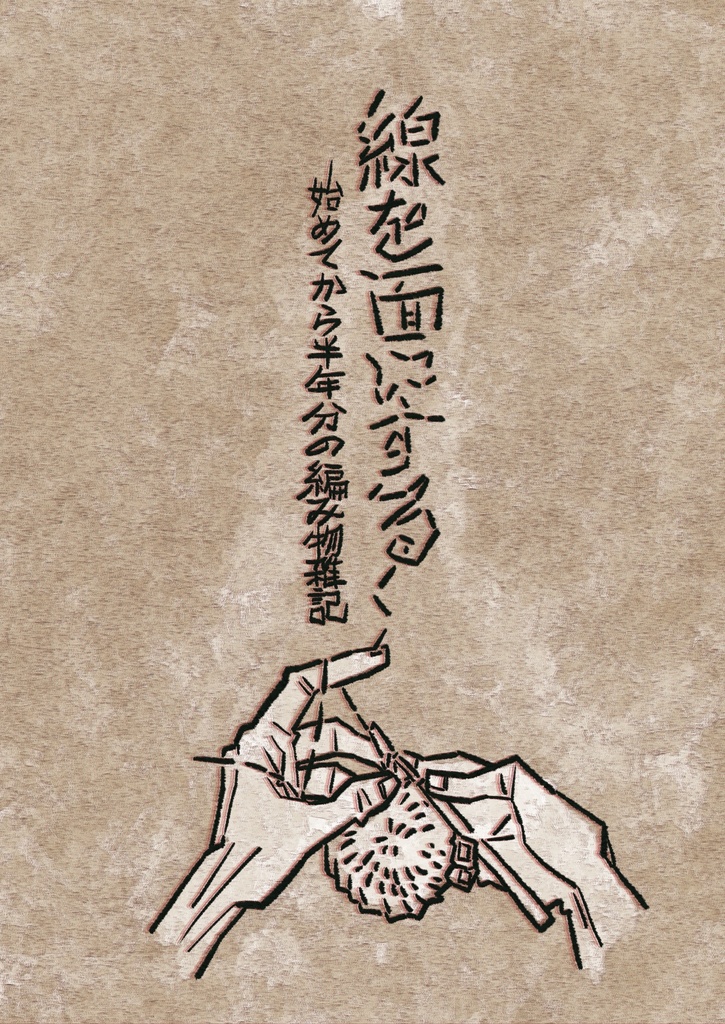 線を面にする
始めてから半年分の編み物雑記